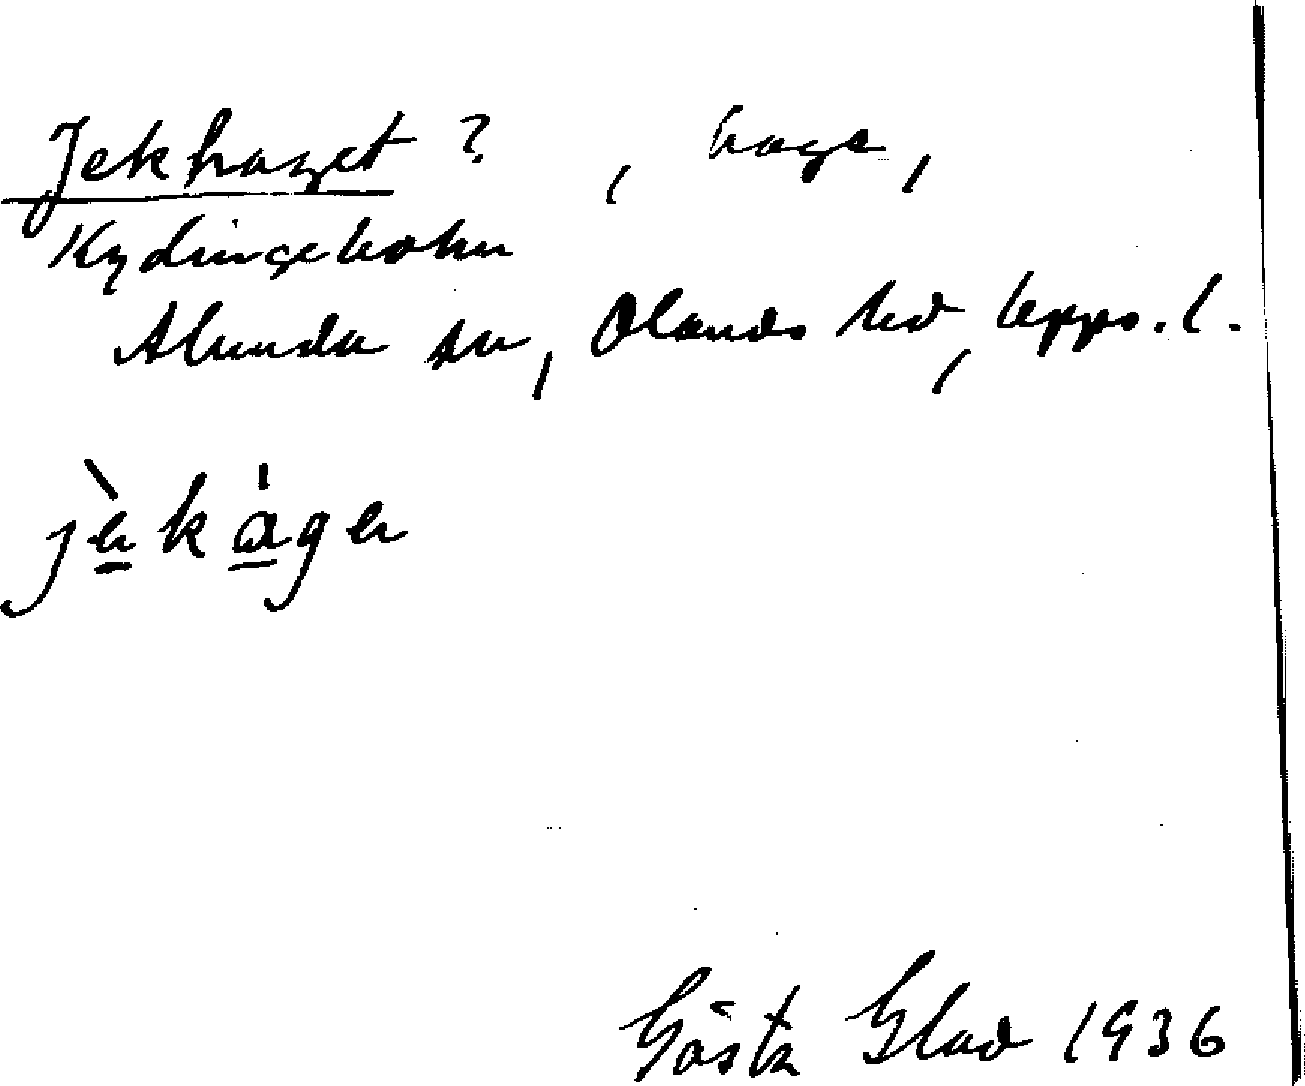 Jekhaget ? , hage,
Kydingeholm
Alunda sn, Olands hd, Upps. l.
jèkàge
Gösta Glad 1936